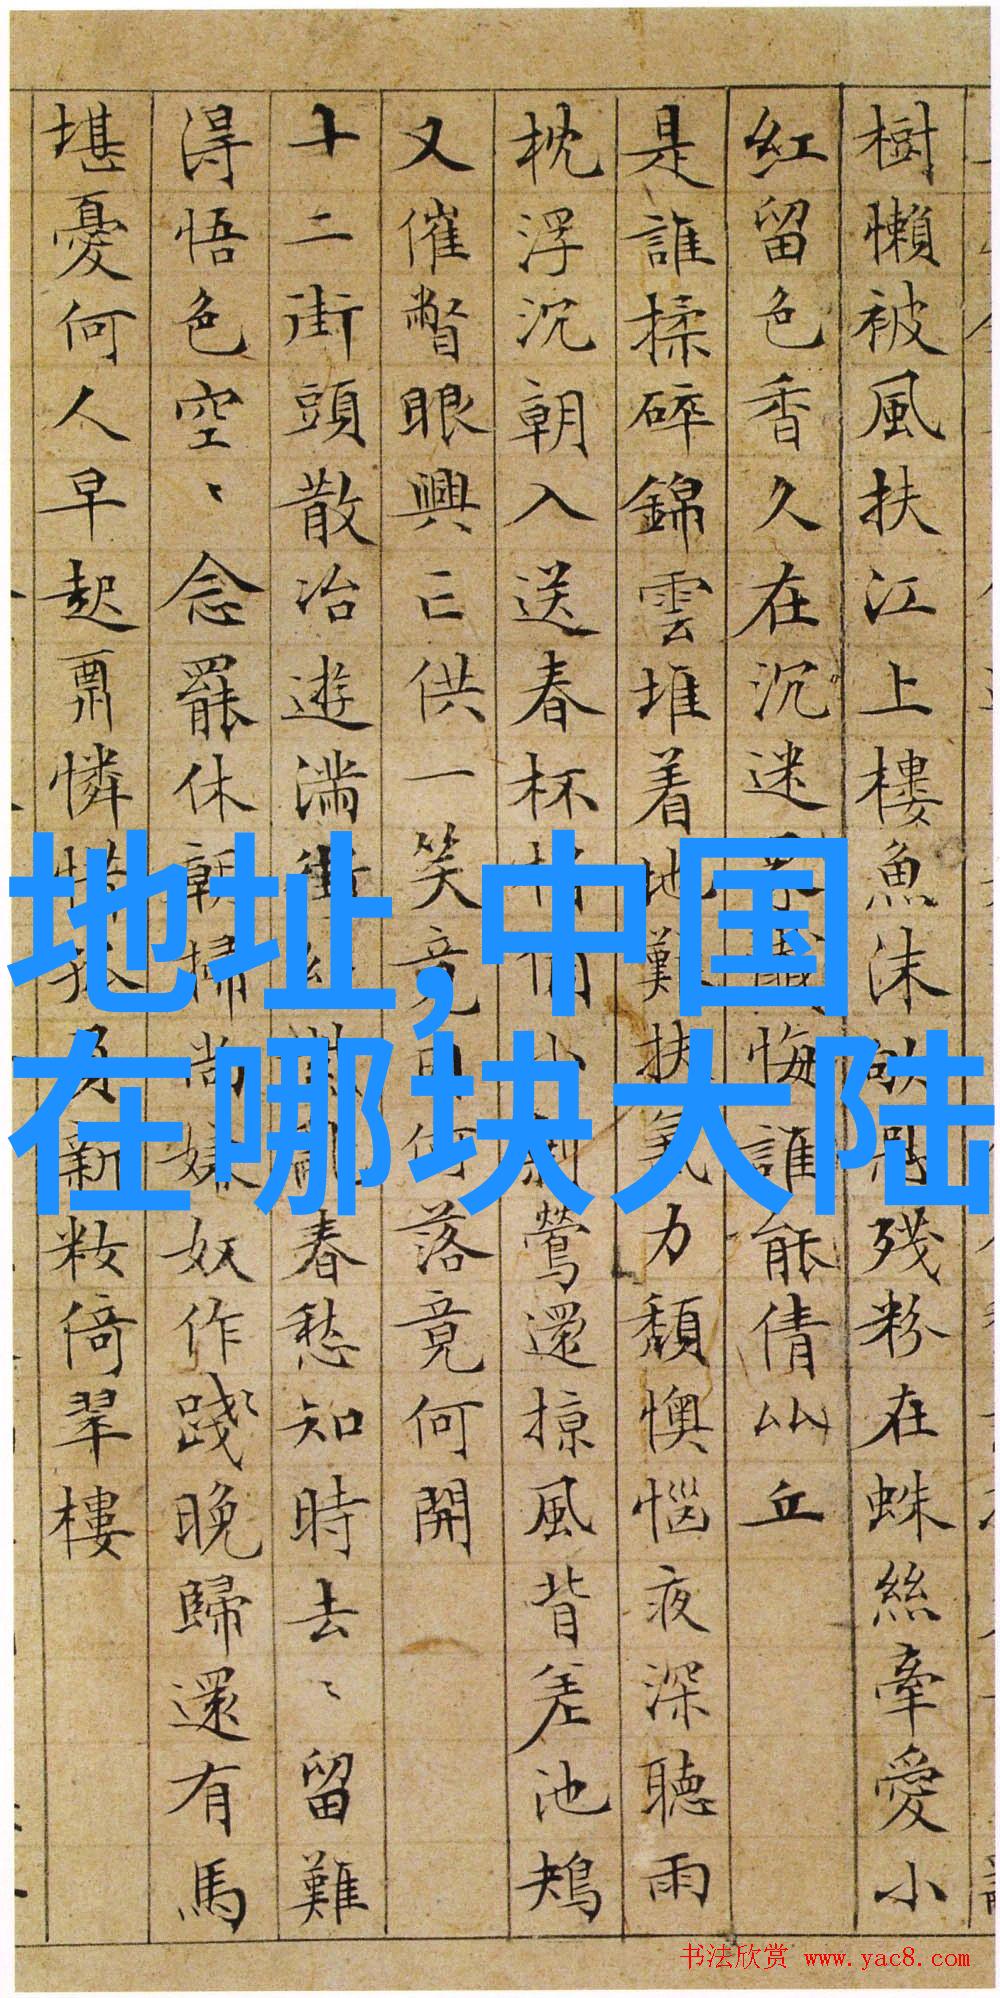 樹懶被風扶江上樓魚沫殘粉在蛛絲牽愛小
紅留色香久在沉迷悔誰能倩丘
是誰揉碎錦雲堆着地難扶氣力頹懊惱夜深聽雨
枕浮沉朝入送春杯鶯還掠風背差池鴂
又催瞥眼興亡供一笑竟何落竟何開
十二街頭散冶遊滿街春愁知時去〻留難
得悟色空〻念罷休朝掃尚嫌奴作踐〻晚歸還有馬
堪憂何人早起憐新妝倚翠樓
地址,中国
在哪块大陆
书法欣赏 www.yac8.com